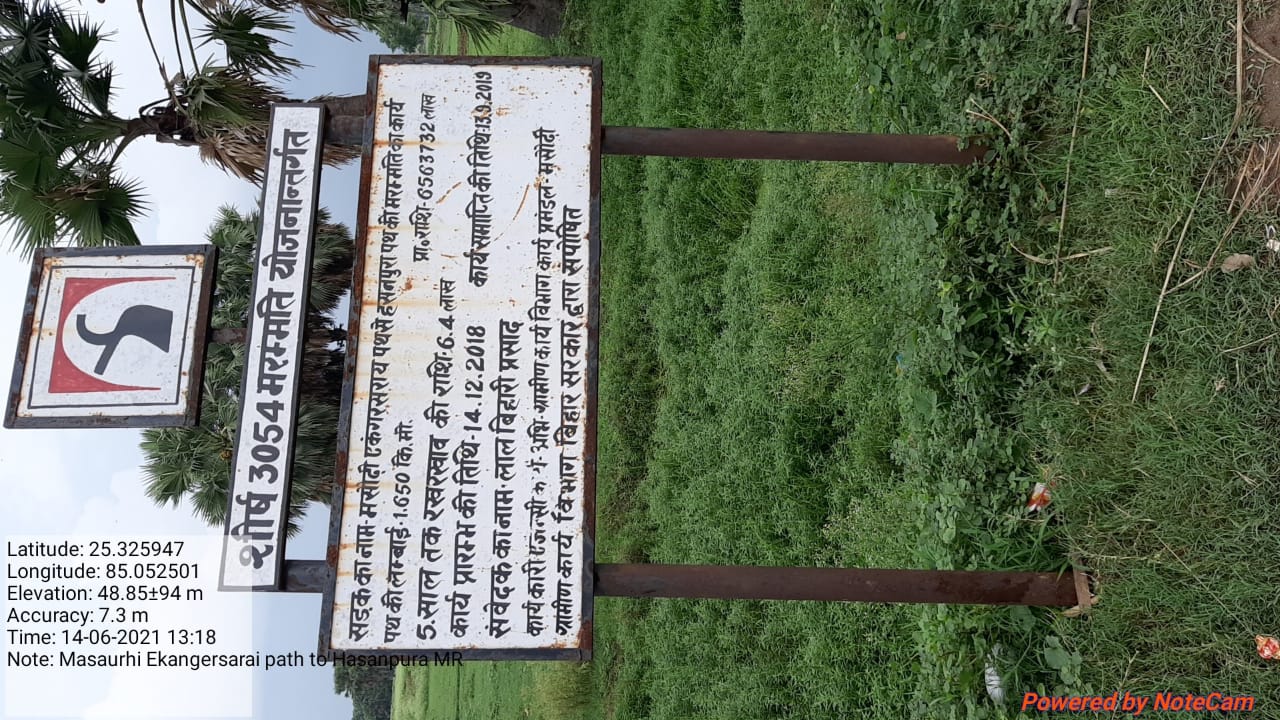 शीर्ष 3054 मरम्मति योजनान्तर्गत
सड़क का नाम- मसौढ़ी एकंगरसराय पथ से हसनपुरा पथ की मरम्मति का कार्य
पथ की लम्बाई-1.650 कि.मी. प्रा.राशि-65.63732 लाख
5.साल तक रखरखाव की राशि-6.4 लाख
कार्य प्रारम्भ की तिथि-14.12.2018 कार्य समाप्ति की तिथि:13.9.2019
संवेदक का नाम- लाल बिहारी प्रसाद
कार्यकारी एजेन्सी का अभि- ग्रामीण कार्य विभाग कार्य प्रमंडल मसौढ़ी
ग्रामीण कार्य विभाग बिहार सरकार द्वारा संपोषित
Latitude: 25.325947
Longitude: 85.052501
Elevation: 48.85±94 m
Accuracy: 7.3 m
Time: 14-06-2021 13:18
Note: Masaurhi Ekangersarai path to Hasanpura MR
Powered by NoteCam